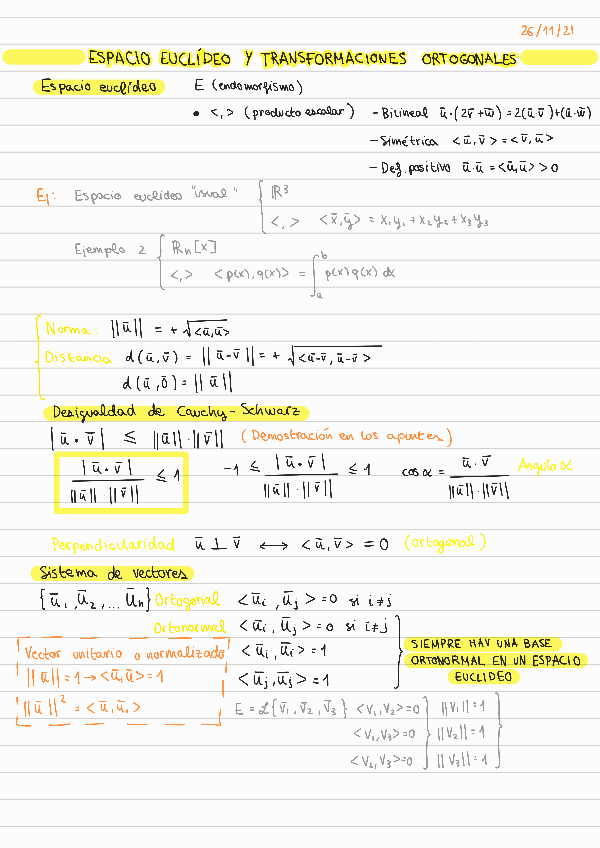 26/11/21
ESPACIO EUCLÍDEO Y TRANSFORMACIONES ORTOGONALES
Espacio euclídeo E (endomorfismo)
• <,> (producto escalar) - Bilineal ū·(2v̄+w̄) = 2(ū·v̄)+(ū·w̄)
- Simétrica <ū,v̄> = <v̄,ū>
- Def. positivo ū·ū = <ū,ū> > 0
Ej: Espacio euclídeo "usual" { ℝ³
<,> <x̄,ȳ> = x₁y₁ + x₂y₂ + x₃y₃
Ejemplo 2 { ℝn[x]
<,> <p(x),q(x)> = ∫ₐᵇ p(x)q(x) dx
Norma: ||ū|| = + √<ū,ū>
Distancia d(ū,v̄) = ||ū-v̄|| = + √<ū-v̄, ū-v̄>
d(ū,ō) = ||ū||
Desigualdad de Cauchy-Schwarz
|ū • v̄| ≤ ||ū||·||v̄|| (Demostración en los apuntes)
|ū • v̄| / ||ū||·||v̄|| ≤ 1 -1 ≤ |ū • v̄| / ||ū||·||v̄|| ≤ 1 cos α = ū · v̄ / ||ū||·||v̄|| Angulo α
Perpendicularidad ū ⊥ v̄ ↔ <ū,v̄> = 0 (ortogonal)
Sistema de vectores
{ū₁,ū₂,... ūn} Ortogonal <ūi, ūj> = 0 si i≠j
Ortonormal <ūi, ūj> = 0 si i≠j
Vector unitario o normalizado <ūi, ūi> = 1 SIEMPRE HAY UNA BASE
ORTONORMAL EN UN ESPACIO
||ū|| = 1 → <ū,ū> = 1 <ūj,ūj> = 1 EUCLIDEO
||ū||² = <ū,ū,> E = ℒ{v̄₁, v̄₂, v̄₃} <v₁,v₂> = 0 ||v₁|| = 1
<v₁,v₃> = 0 ||v₂|| = 1
<v₂,v₃> = 0 ||v₃|| = 1